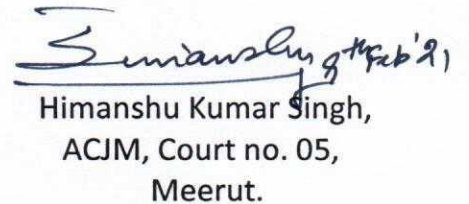 Himanshu 9th Feb'21
Himanshu Kumar Singh,
ACJM, Court no. 05,
Meerut.